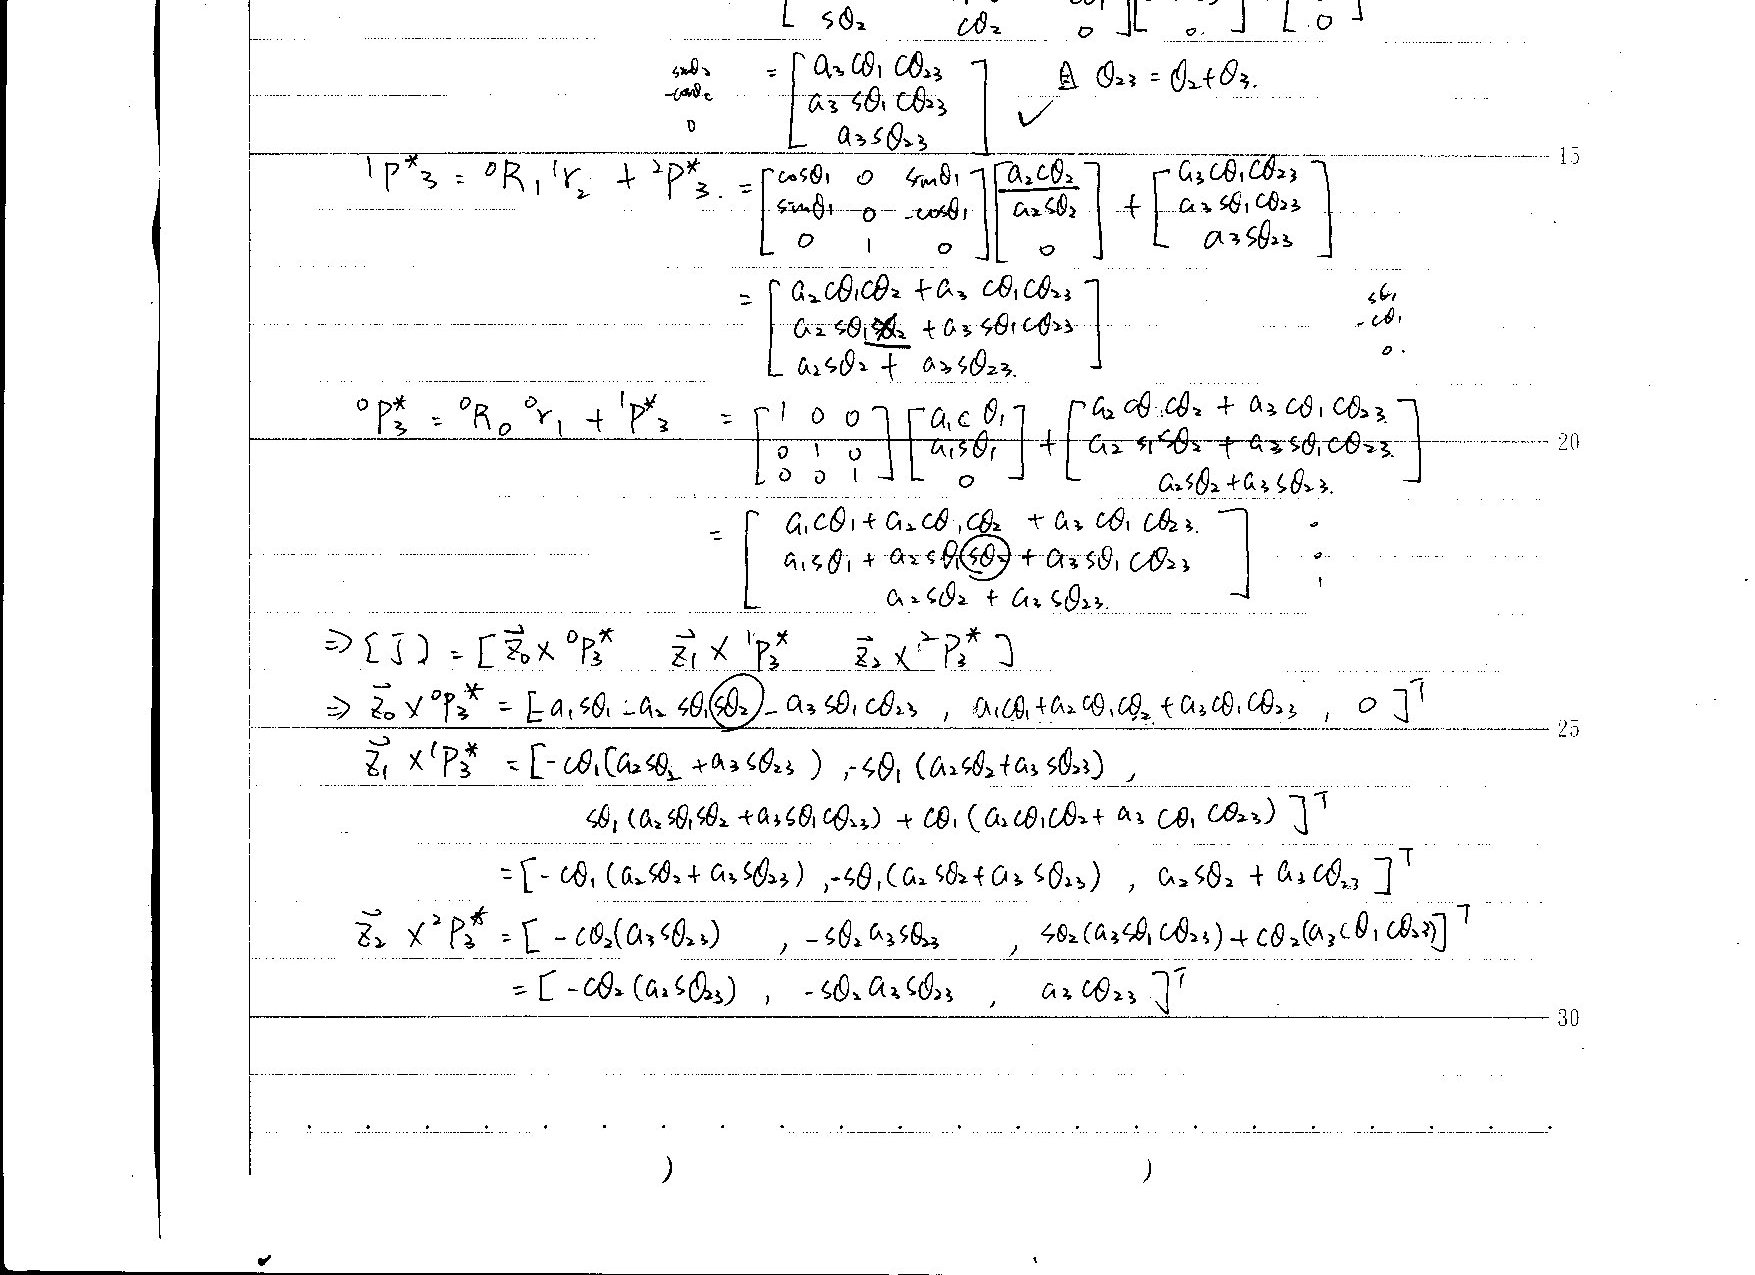 sθ₂ cθ₂ 0 ] [ 0. ] [ 0 ]
= [ a₃cθ₁cθ₂₃ ; a₃sθ₁cθ₂₃ ; a₃sθ₂₃ ] ✓ θ₂₃ = θ₂+θ₃.
0
15
¹P*₃ = ⁰R₁ ¹r₂ + ²P*₃. = [ cosθ₁ 0 sinθ₁ ; sinθ₁ 0 -cosθ₁ ; 0 1 0 ] [ a₂cθ₂ ; a₂sθ₂ ; 0 ] + [ a₃cθ₁cθ₂₃ ; a₃sθ₁cθ₂₃ ; a₃sθ₂₃ ]
= [ a₂cθ₁cθ₂ + a₃cθ₁cθ₂₃ ; a₂sθ₁sθ₂ + a₃sθ₁cθ₂₃ ; a₂sθ₂ + a₃sθ₂₃. ]
sθ₁
-cθ₁
0.
⁰P*₃ = ⁰R₀ ⁰r₁ + ¹P*₃ = [ 1 0 0 ; 0 1 0 ; 0 0 1 ] [ a₁cθ₁ ; a₁sθ₁ ; 0 ] + [ a₂cθ₁cθ₂ + a₃cθ₁cθ₂₃ ; a₂s₁sθ₂ + a₃sθ₁cθ₂₃. ; a₂sθ₂+a₃sθ₂₃. ]
20
= [ a₁cθ₁+a₂cθ₁cθ₂ + a₃cθ₁cθ₂₃. ; a₁sθ₁ + a₂sθ₁sθ₂ + a₃sθ₁cθ₂₃ ; a₂sθ₂ + a₃sθ₂₃. ]
0
0
1
⇒ [J] = [ z⃗₀ × ⁰P₃* z⃗₁ × ¹P₃* z⃗₂ × ²P₃* ]
⇒ z⃗₀ × ⁰P₃* = [ -a₁sθ₁ - a₂sθ₁sθ₂ - a₃sθ₁cθ₂₃ , a₁cθ₁+a₂cθ₁cθ₂+a₃cθ₁cθ₂₃ , 0 ]ᵀ
25
z⃗₁ × ¹P₃* = [ -cθ₁(a₂sθ₂ + a₃sθ₂₃) , -sθ₁(a₂sθ₂+a₃sθ₂₃) ,
sθ₁(a₂sθ₁sθ₂ + a₃sθ₁cθ₂₃) + cθ₁(a₂cθ₁cθ₂ + a₃cθ₁cθ₂₃) ]ᵀ
= [ -cθ₁(a₂sθ₂ + a₃sθ₂₃) , -sθ₁(a₂sθ₂ + a₃sθ₂₃) , a₂sθ₂ + a₃cθ₂₃ ]ᵀ
z⃗₂ × ²P₃* = [ -cθ₂(a₃sθ₂₃) , -sθ₂a₃sθ₂₃ , sθ₂(a₃sθ₁cθ₂₃)+cθ₂(a₃cθ₁cθ₂₃) ]ᵀ
= [ -cθ₂(a₃sθ₂₃) , -sθ₂a₃sθ₂₃ , a₃cθ₂₃ ]ᵀ
30